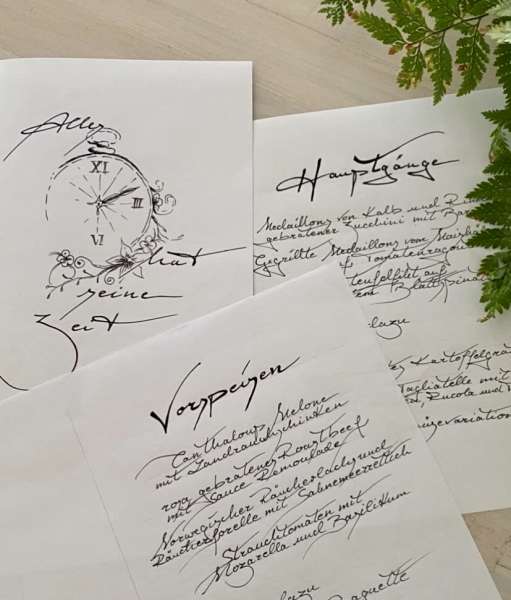 Alles
XI
III
VI
hat
seine
Zeit
Hauptgänge
Medaillons von Kalb und
gebratener Zucchini mit
Gegrillte Medaillons vom
Tomatenragou
teufelfilet auf
dazu
Kartoffelgra
Tagliatelle mit
Rucola und
Vorspeisen
Canthaloupe Melone
mit Landrauchschinken
rosa gebratenes Roastbeef
mit Sauce Remoulade
Norwegischer Räucherlachs und
Räucherforelle mit Sahnemeerrettich
Strauchtomaten mit
Mozarella und Basilikum
dazu
Baguette